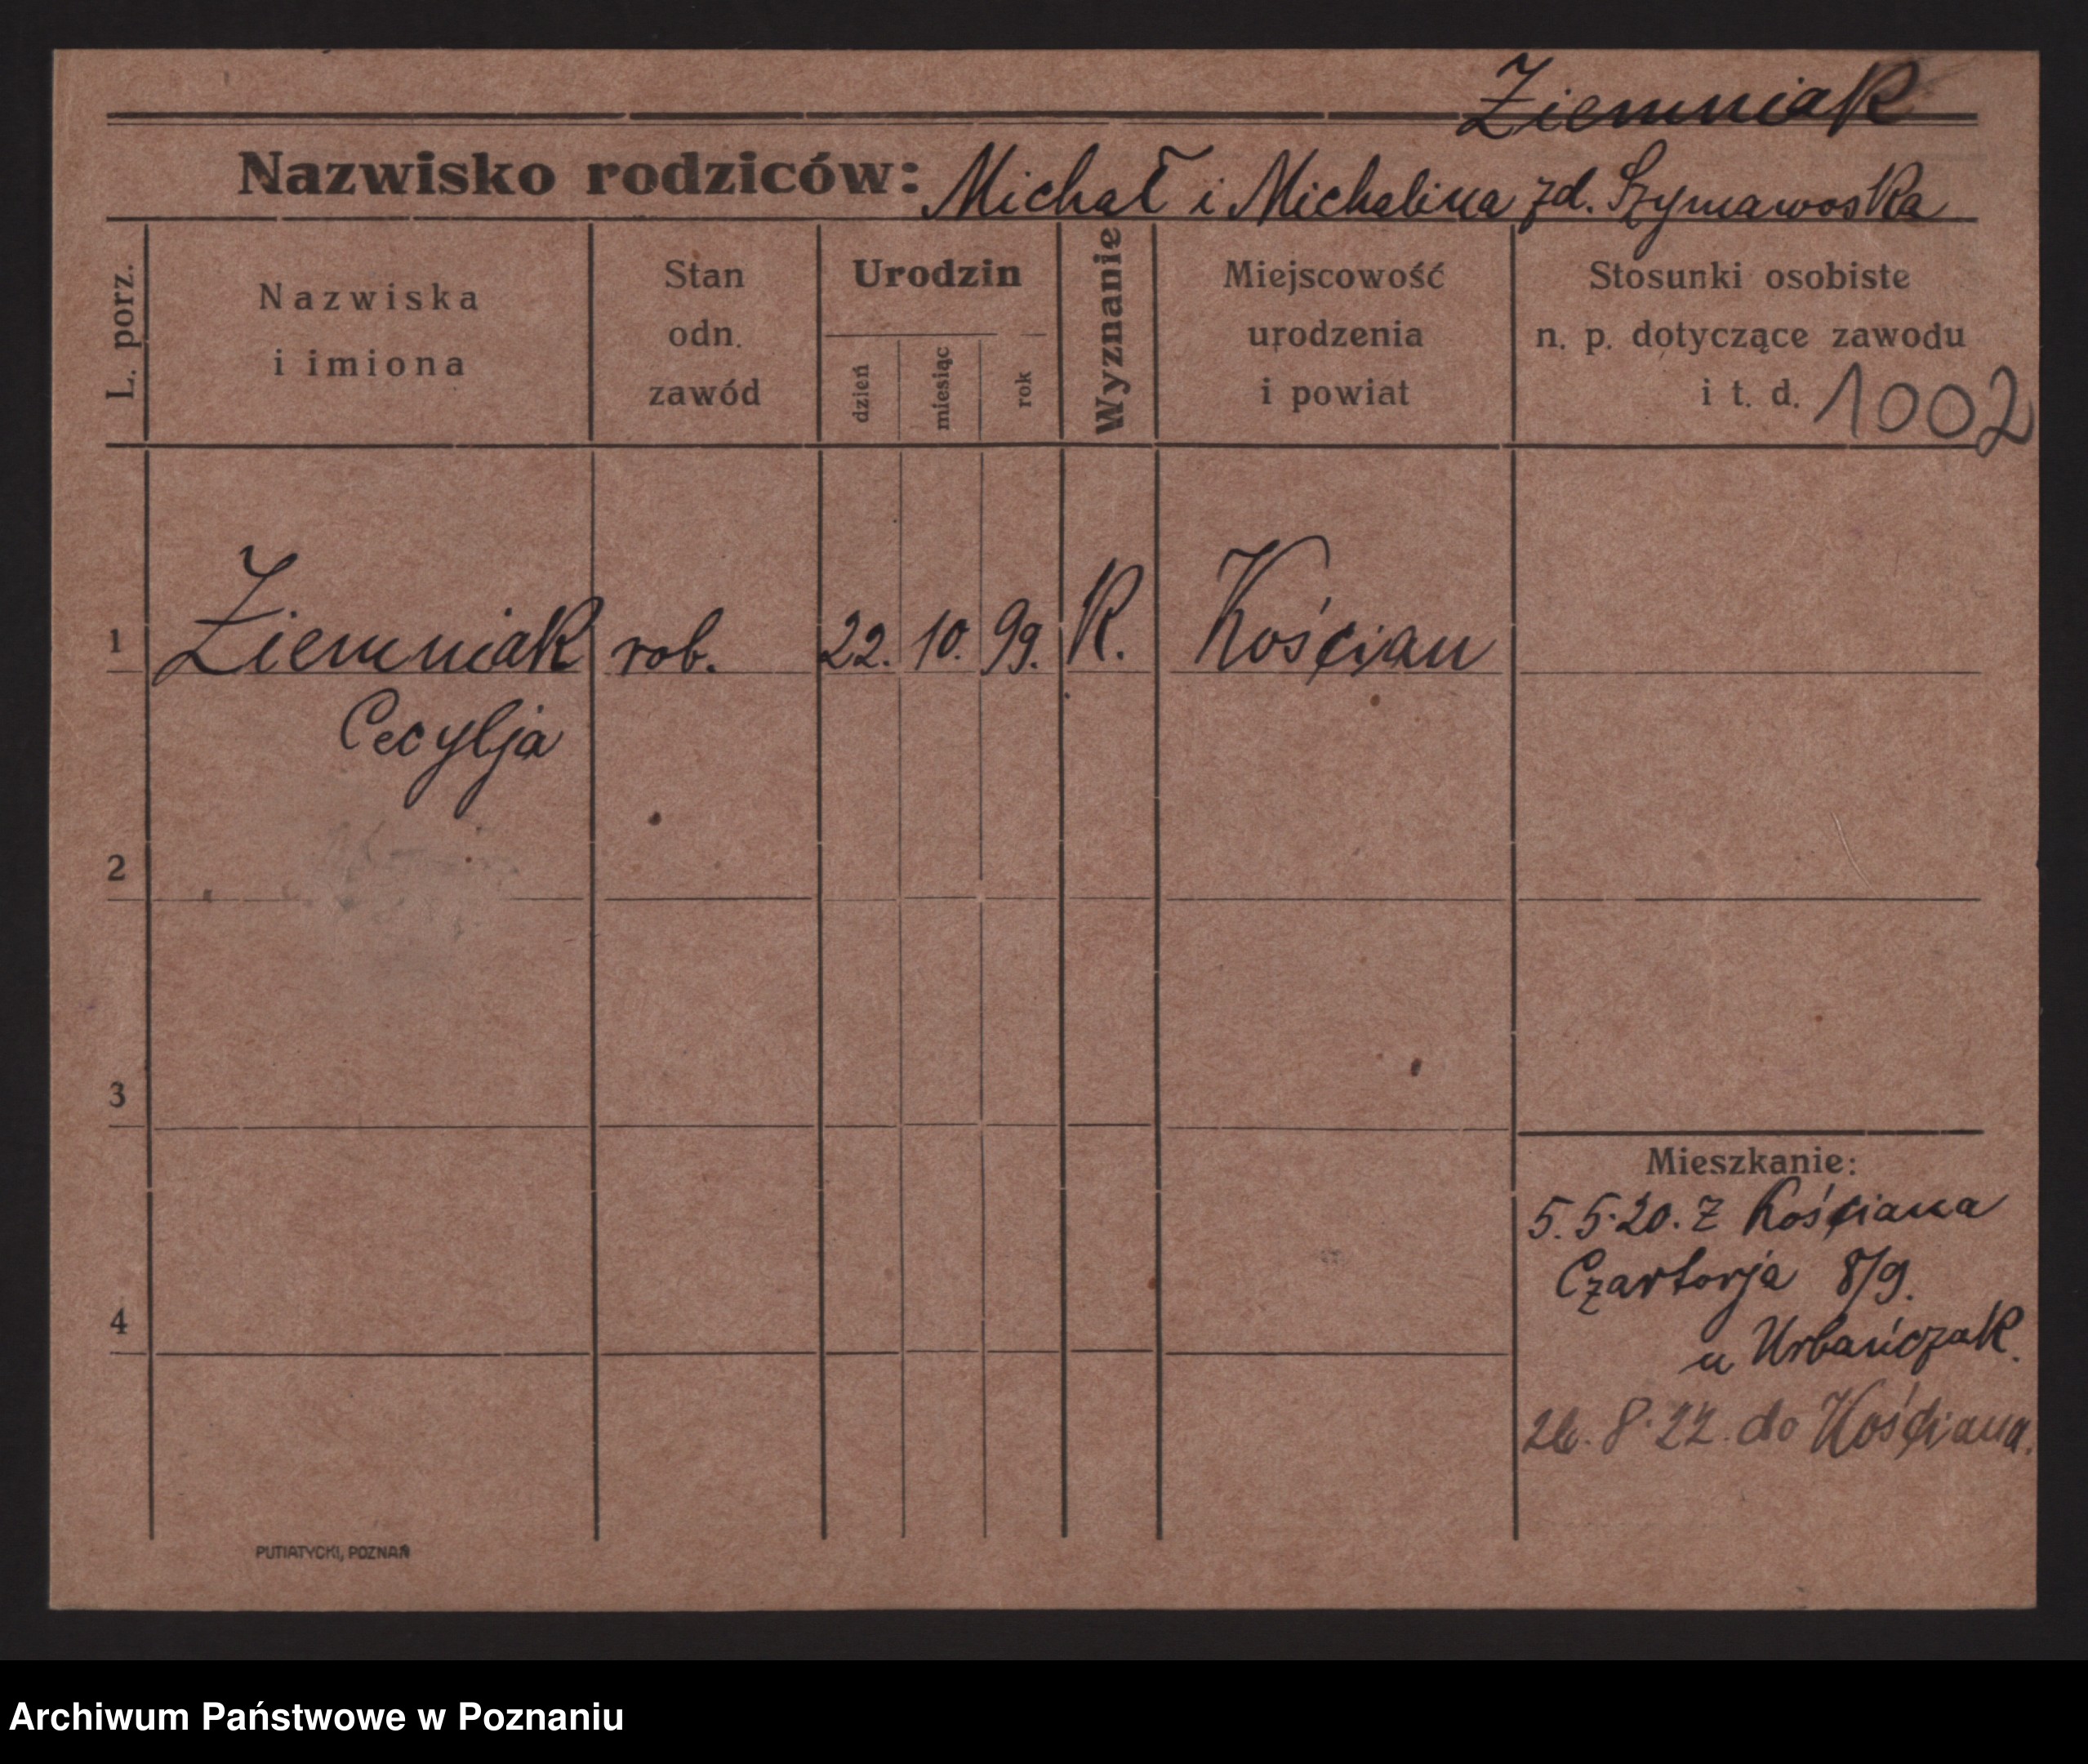 Ziemniak
Nazwisko rodziców: Michał i Michalina zd. Szymawoska
L. porz.
Nazwiska
i imiona
Stan
odn.
zawód
Urodzin
dzień
miesiąc
rok
Wyznanie
Miejscowość
urodzenia
i powiat
Stosunki osobiste
n. p. dotyczące zawodu
i t. d. 1002
1 Ziemniak rob. 22. 10. 99. K. Kościan
Cecylja
2
3
4
Mieszkanie:
5. 5. 20. z Kościana
Czartorja 8/9.
u Urbańczak.
26. 8. 22. do Kościana.
PUTIATYCKI, POZNAŃ
Archiwum Państwowe w Poznaniu